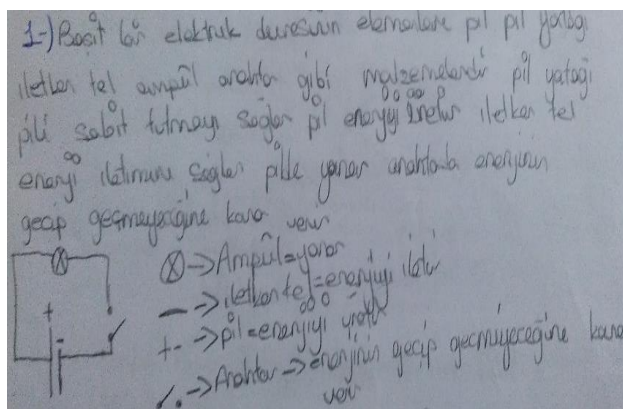 1-) Basit bir elektrik devresinin elemanları pil pil yatağı
iletken tel ampûl anahtar gibi malzemelerdir pil yatağı
pili sabit tutmayı sağlar pil enerjiyi üretir iletken tel
enerji iletimini sağlar pille yanar anahtarda enerjinin
geçip geçmeyeceğine karar verir
Ampûl=yanar
iletken tel=enerjiyi iletir
+
+- → pil=enerjiyi üretir
Anahtar → enerjinin geçip geçmiyeceğine karar
verir